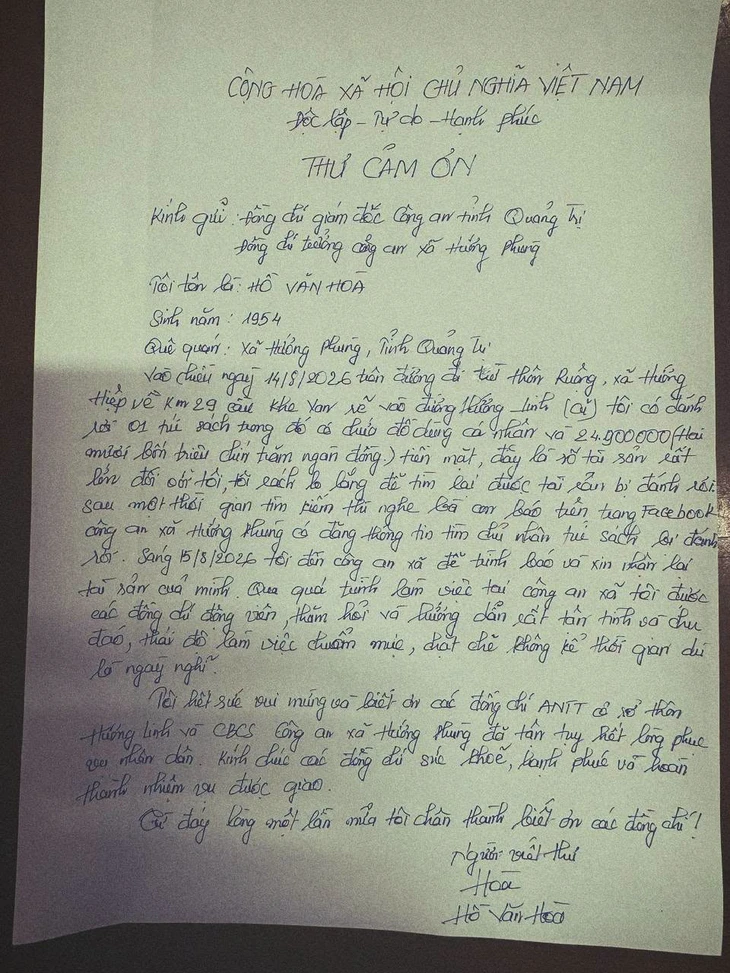 CỘNG HOÀ XÃ HỘI CHỦ NGHĨA VIỆT NAM
Độc lập - Tự do - Hạnh phúc
THƯ CẢM ƠN
Kính gửi: Đồng chí giám đốc Công an tỉnh Quảng Trị
Đồng chí trưởng công an xã Hướng Phùng
Tôi tên là: HỒ VĂN HOÀ
Sinh năm: 1954
Quê quán: Xã Hướng Phùng, Tỉnh Quảng Trị
Vào chiều ngày 14/8/2026 trên đường đi từ thôn Ruồng, xã Hướng
Hiệp về Km 29 cầu Khe Van rẽ vào đường Hướng Linh (cũ) tôi có đánh
rơi 01 túi sách trong đó có chứa đồ dùng cá nhân và 24.900000 (Hai
mươi bốn triệu chín trăm ngàn đồng) tiền mặt, đây là số tài sản rất
lớn đối với tôi, tôi rất lo lắng để tìm lại được tài sản bị đánh rơi
sau một thời gian tìm kiếm thì nghe bà con báo trên trang Facebook
công an xã Hướng Phùng có đăng thông tin tìm chủ nhân túi sách bị đánh
rơi. Sáng 15/8/2026 tôi đến công an xã để trình báo và xin nhận lại
tài sản của mình. Qua quá trình làm việc tại công an xã tôi được
các đồng chí động viên, thăm hỏi và hướng dẫn rất tận tình và chu
đáo, thái độ làm việc chuẩn mực, chặt chẽ không kể thời gian dù
là ngày nghỉ.
Tôi hết sức vui mừng và biết ơn các đồng chí ANTT cơ sở thôn
Hướng Linh và CBCS Công an xã Hướng Phùng đã tận tuỵ hết lòng phục
vụ nhân dân. Kính chúc các đồng chí sức khoẽ, hạnh phúc và hoàn
thành nhiệm vụ được giao.
Từ đáy lòng một lần nữa tôi chân thành biết ơn các đồng chí!
Người viết thư
Hoà
Hồ Văn Hoà